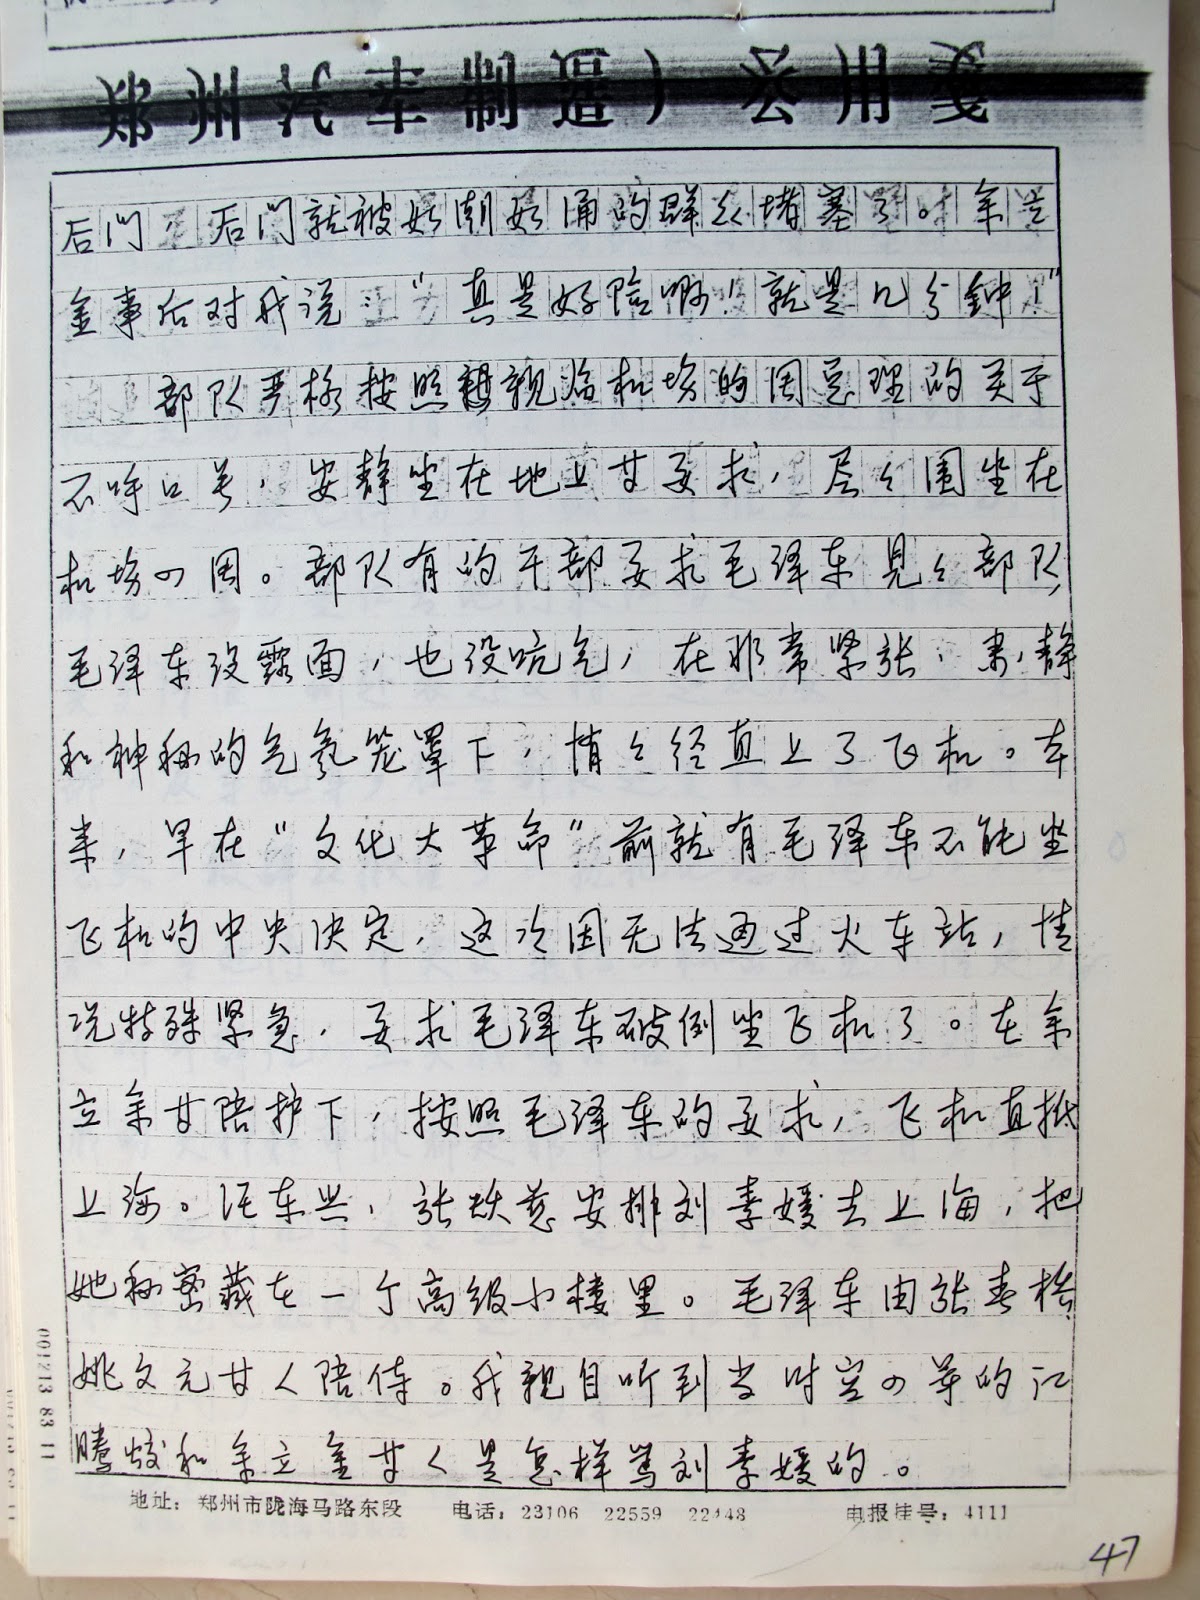 郑州汽车制造厂公用笺
后门，后门就被如潮如涌的群众堵塞了。余立
金事后对我说：“真是好险啊！就是几分钟！”
部队严格按照亲临机场的周总理的关于
不呼口号，安静坐在地上等要求，层层围坐在
机场四周。部队有的干部要求毛泽东见见部队，
毛泽东没露面，也没吭气，在非常紧张、肃静
和神秘的气氛笼罩下，悄悄径直上了飞机。本
来，早在“文化大革命”前就有毛泽东不能坐
飞机的中央决定，这次因无法通过火车站，情
况特殊紧急，要求毛泽东破例坐飞机了。在余
立金等陪护下，按照毛泽东的要求，飞机直抵
上海。汪东兴、张耀慈安排刘素媛去上海，把
她秘密藏在一个高级小楼里。毛泽东由张春桥
姚文元等人陪侍。我亲自听到当时空四军的江
腾蛟和余立金等人是怎样骂刘素媛的。
地址：郑州市陇海马路东段 电话：23106 22559 22448 电报挂号：4111
001213 83 11
47